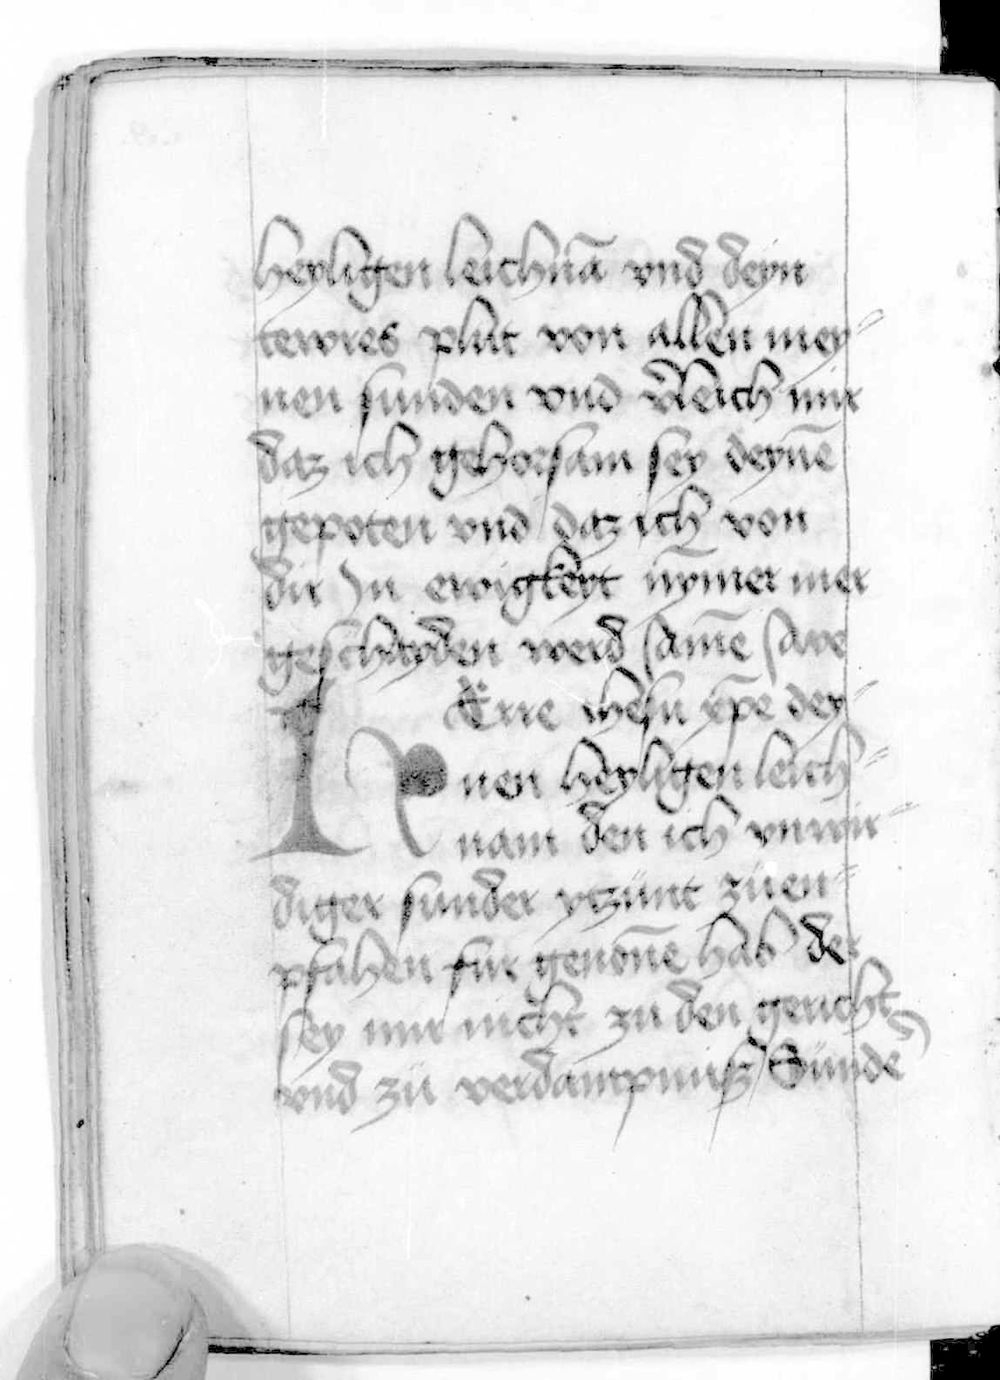 heyligen leichnā vnd deyn
tewres plut von allen mey-
nen sunden vnd v̄leich mir
daz ich gehorsam sey deynē
gepoten vnd daz ich von
dir In ewigkeyt nȳmer mer
geschayden werd Amē
HErre ihesu xp̄e dey-
nen heyligen leich-
nam den ich vnwir-
diger sunder ytzünt zü en-
pfahen fur genōnē hab der
sey mir nicht zu den gericht
vnd zü verdampnuß Sünder